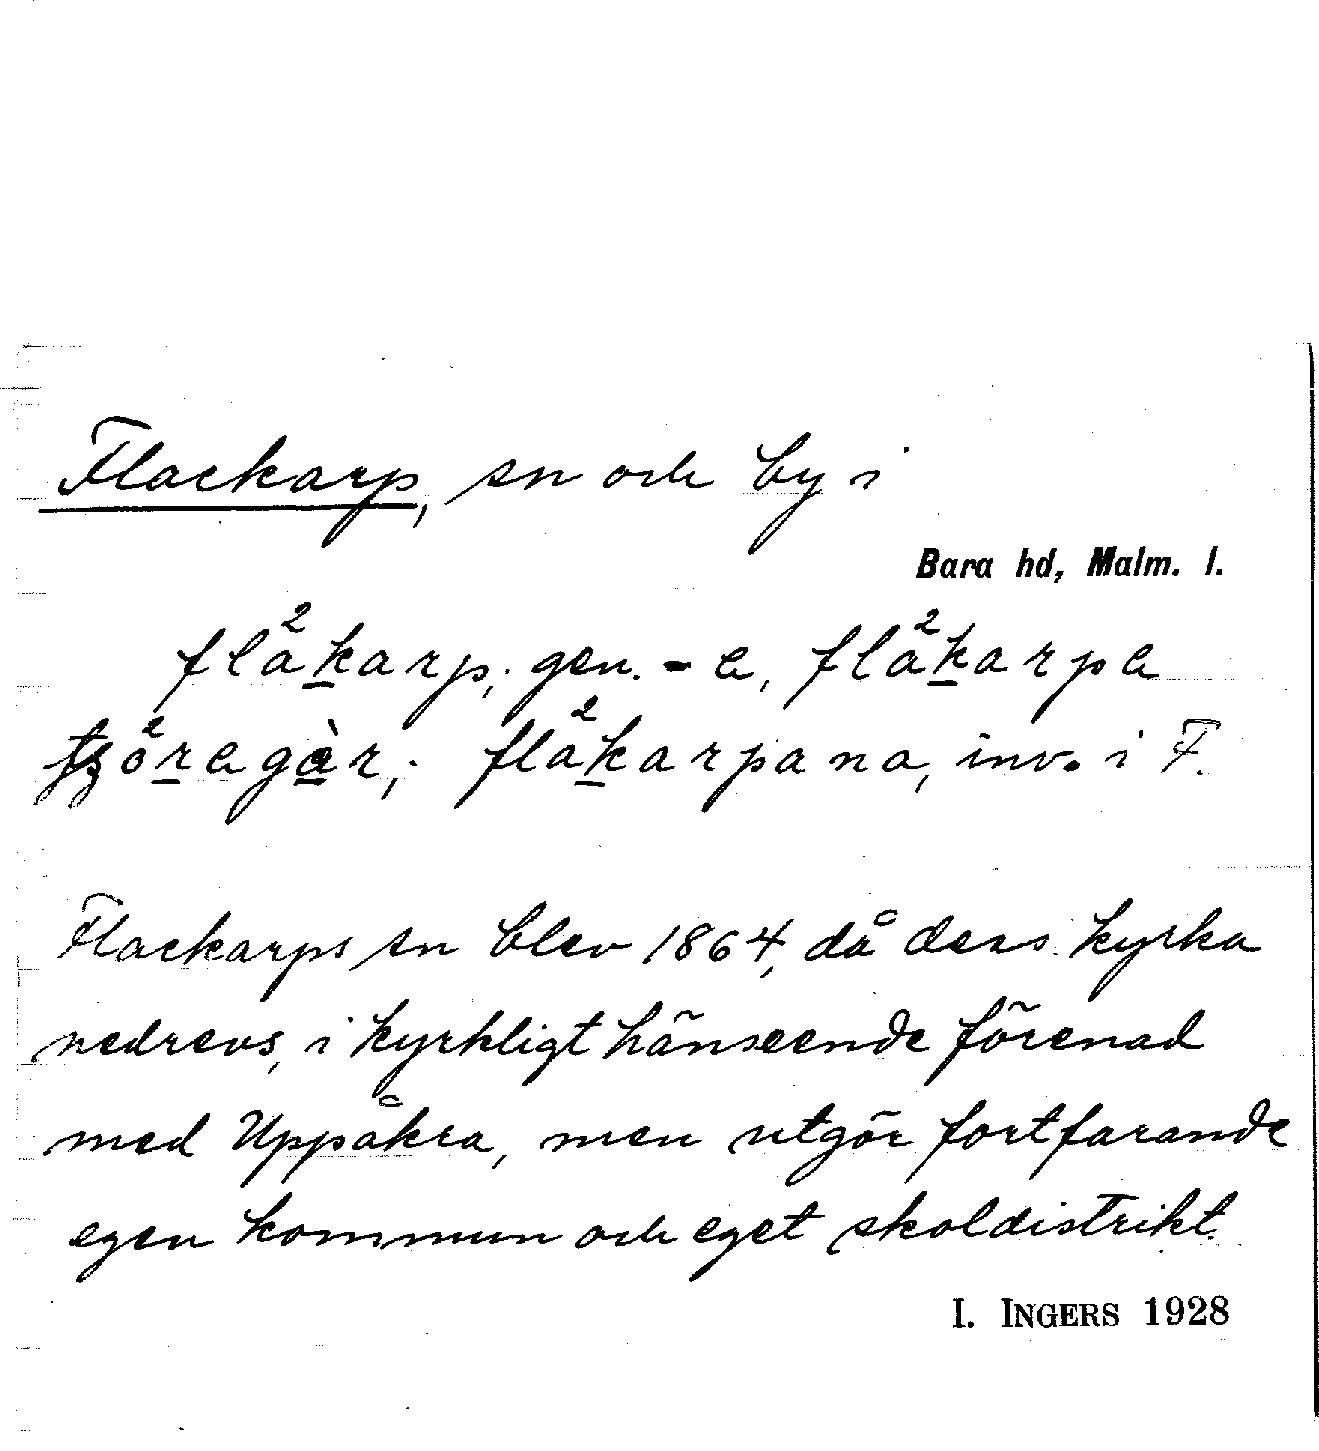 Flackarp, sn och by i
Bara hd, Malm. l.
flåkarp; gen. -a, flåkarpa
flåkarpana, inv. i F.
Flackarps sn blev 1864, då dess kyrka
nedrevs, i kyrkligt hänseende förenad
med Uppåkra, men utgör fortfarande
egen kommun och eget skoldistrikt.
I. INGERS 1928